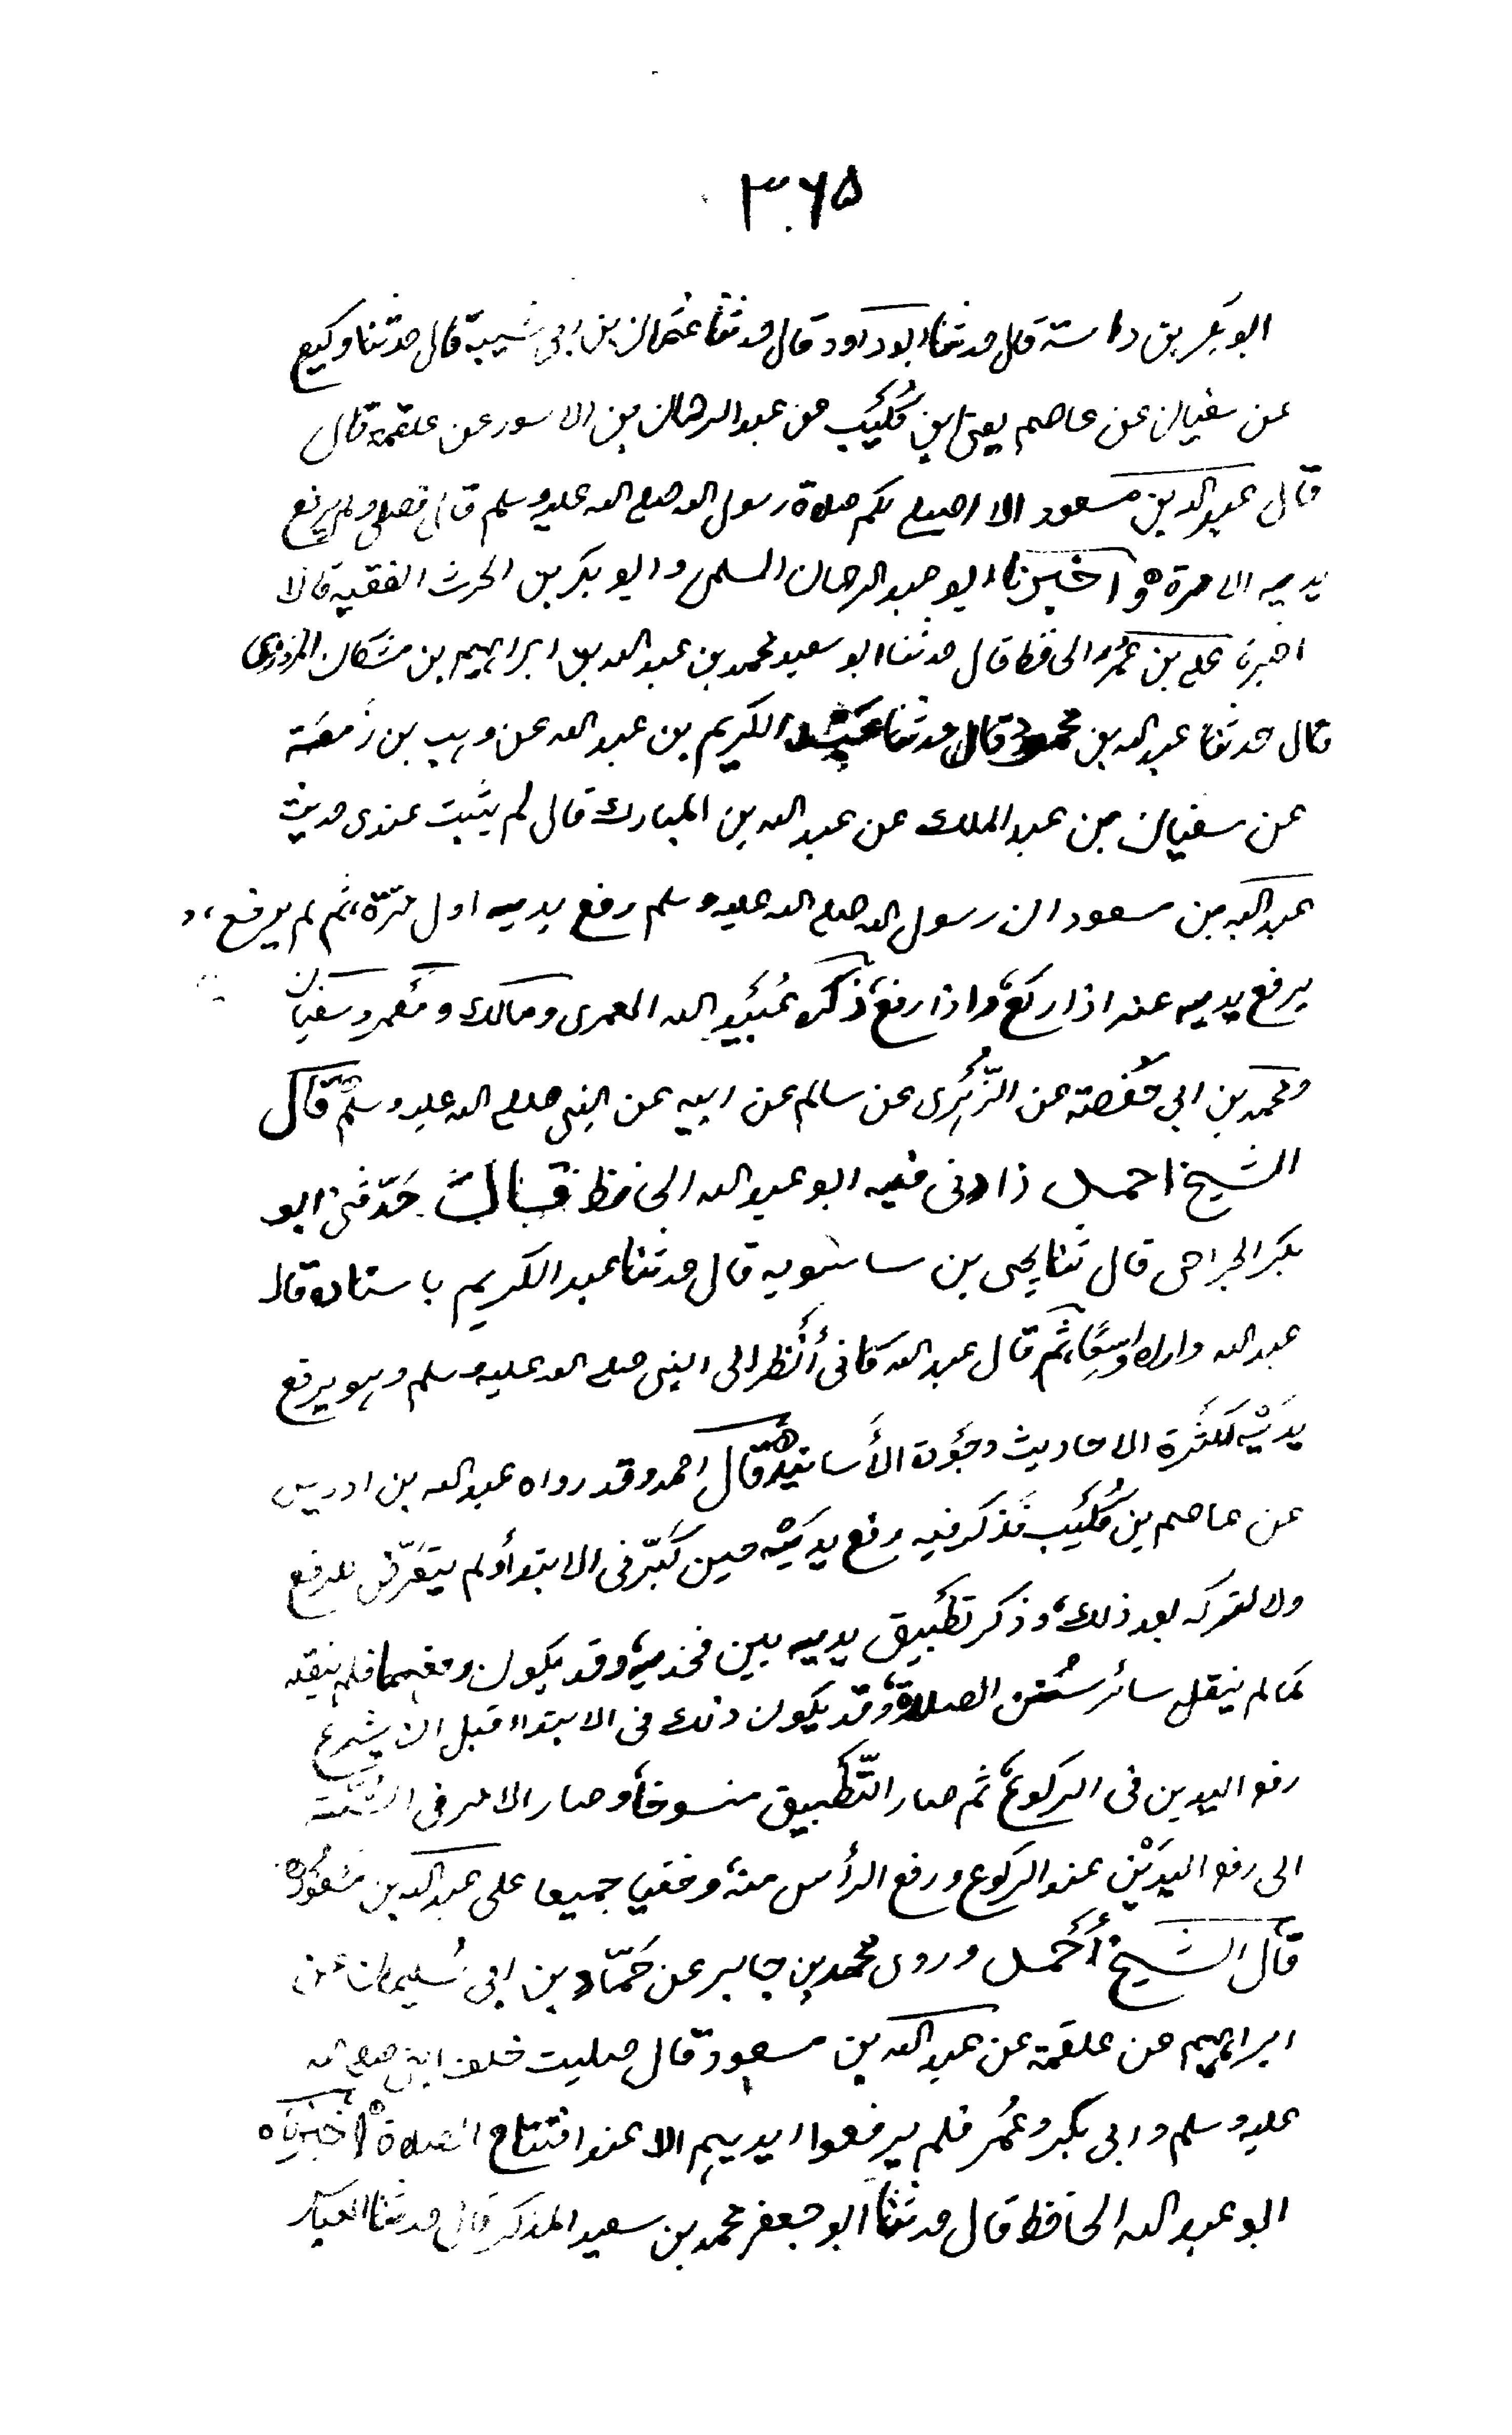 ٣٠٦٥
ابو بكر بن داسة قال حدثنا ابو داود قال حدثنا عثمان بن ابى شيبة قال حدثنا وكيع
عن سفيان عن عاصم يعنى ابن كُلَيب عن عبد الرحمان بن الاسود عن علقمة قال
قال عبد الله بن مسعود الا اصلى بكم صلاة رسول الله صلى الله عليه وسلم قال فصلى ولم يرفع
يديه الا مرة ه و اخبرنا ابو عبد الرحمان السلمى و ابو بكر بن الحرث الفقيه قالا
اخبرنا على بن عُمر الحافظ قال حدثنا ابو سعيد محمد بن عبد الله بن ابراهيم بن مشكان المروزى
قال حدثنا عبد الله بن محمود قال حدثنا عبد الكريم بن عبد الله عن وهب بن زَمعَة
عن سفيان بن عبد الملك عن عبد الله بن المبارك قال لم يثبت عندى حديث
عبد الله بن مسعود ان رسول الله صلى الله عليه وسلم رفع يديه اول مَرّة، ثم لم يرفع،
يرفع يديه عند اذا ركع، و اذا رفع، ذكره عُبَيد الله العمرى و مالك و مَعمر و سفيان
و محمد بن ابى حَفصة عن الزُّهرى عن سالم عن ابيه عن النبى صلى الله عليه وسلم قال
الشيخ احمد زادنى فيه ابو عبد الله الحافظ قال حَدّثنى ابو
بكر الجراحى قال ثنا يحيى بن ساسويه قال حدثنا عبد الكريم باسناده قال
عبد الله و اراه واسِعًا، ثم قال عبد الله كانى أنظر الى النبى صلى الله عليه وسلم و هو يرفع
يدَيْه لكثرة الاحاديث و جَوْدة الأسانيد ه قال احمد و قد رواه عبد الله بن ادريس
عن عاصم بن كُلَيب فذكر فيه رفع يدَيْه حين كَبّر فى الابتدأ و لم يتعَرّض للرفع
ولا لتركه بعد ذلك، و ذكر تطبيق يديه بين فخذيه، و قد يكون رفعهما فلم ينقله
كما لم ينقل سائر سُنَن الصلاة، و قد يكون ذلك فى الابتداء قبل ان يشرع
رفع اليدين فى الركوع، ثم صار التّطبيق منسوخًا و صار الامر فى السُّنّة
الى رفع اليدَيْن عند الركوع و رفع الرأس منه، و خفيا جميعا على عبد الله بن مَسْعُود ه
قال الشيخ أحمد و روى محمد بن جابر عن حَمّاد بن ابى سُليمان عن
ابراهيم عن علقمة عن عبد الله بن مسعود قال صليت خلف النبى صلى الله
عليه وسلم و ابى بكر و عُمر فلم يرفعوا ايديهم الا عند افتتاح الصلاة ه اخبرناه
ابو عبد الله الحافظ قال حدثنا ابو جعفر محمد بن سعيد المذكر قال حدثنا العباس